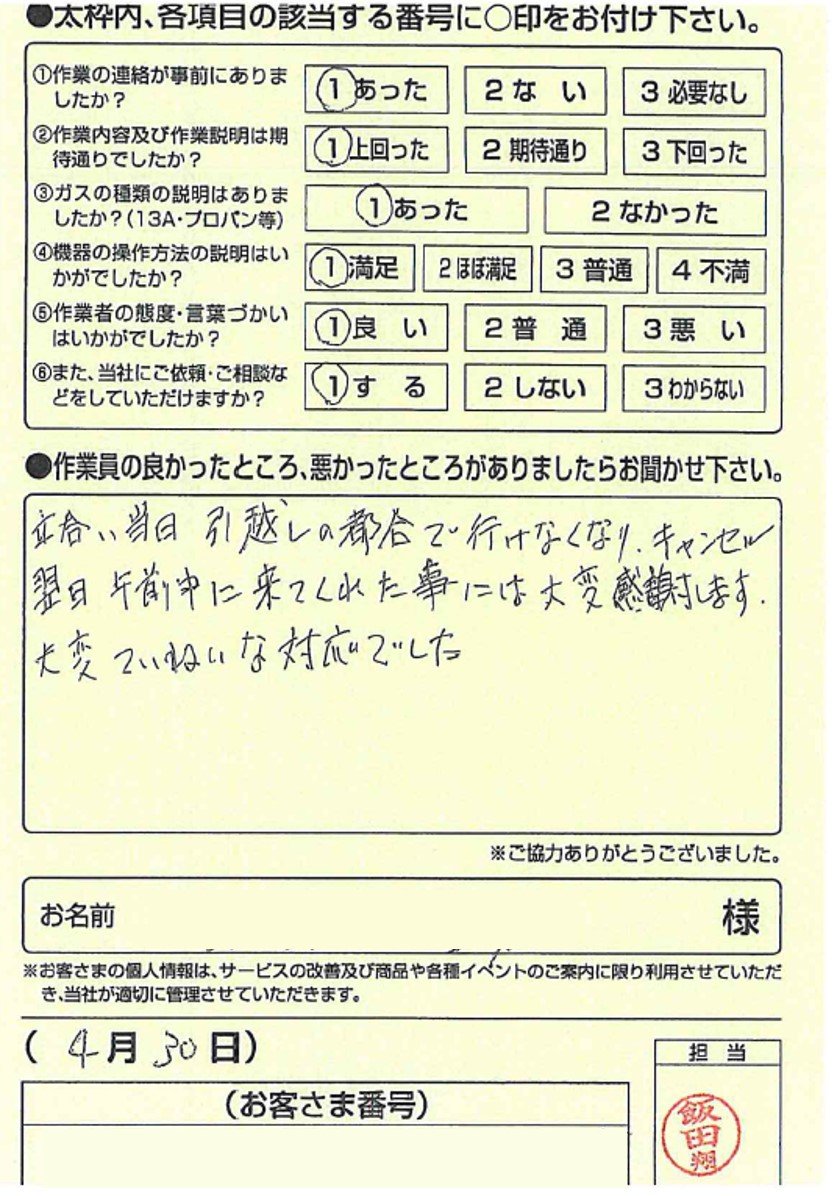 ●太枠内、各項目の該当する番号に○印をお付け下さい。
①作業の連絡が事前にありま
したか?
1 あった 2 な い 3 必要なし
②作業内容及び作業説明は期
待通りでしたか?
1 上回った 2 期待通り 3 下回った
③ガスの種類の説明はありま
したか?(13A・プロパン等)
1 あった 2 なかった
④機器の操作方法の説明はい
かがでしたか?
1 満足 2 ほぼ満足 3 普通 4 不満
⑤作業者の態度・言葉づかい
はいかがでしたか?
1 良 い 2 普 通 3 悪 い
⑥また、当社にご依頼・ご相談な
どをしていただけますか?
1 す る 2 しない 3 わからない
●作業員の良かったところ、悪かったところがありましたらお聞かせ下さい。
立合い当日 引越しの都合で行けなくなり、キャンセル
翌日午前中に来てくれた事には大変感謝します.
大変ていねいな対応でした
※ご協力ありがとうございました。
お名前 様
※お客さまの個人情報は、サービスの改善及び商品や各種イベントのご案内に限り利用させていただ
き、当社が適切に管理させていただきます。
( 4月 30日)
担 当
(お客さま番号)
飯田翔